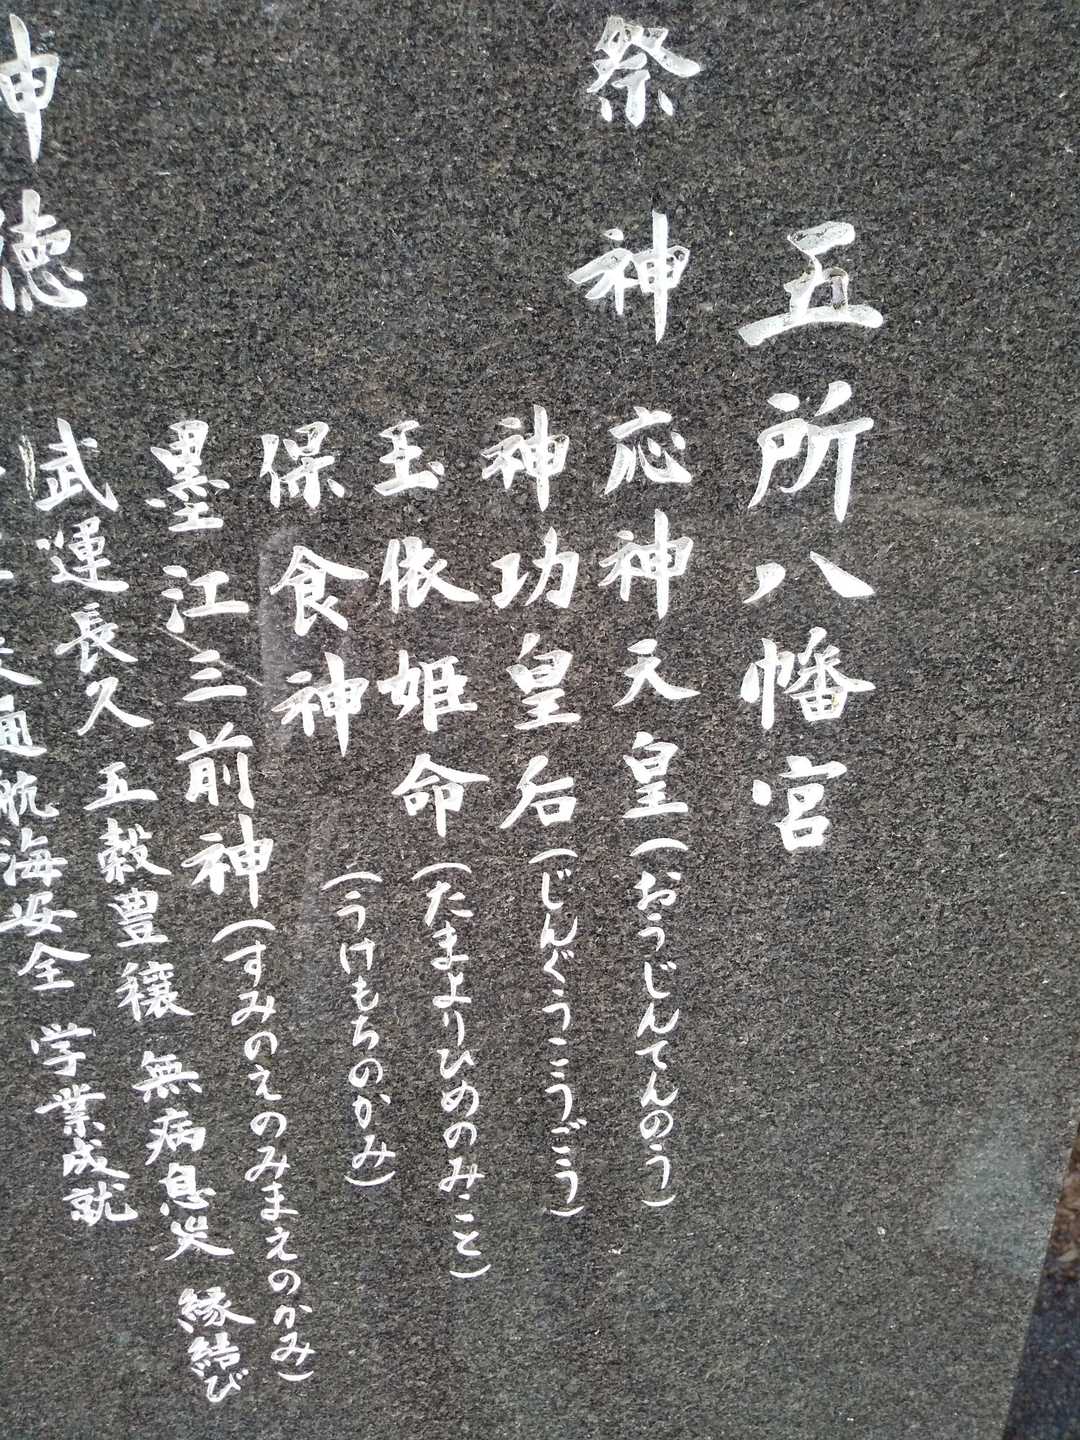 五所八幡宮
祭神
応神天皇(おうじんてんのう)
神功皇后(じんぐうこうごう)
玉依姫命(たまよりひめのみこと)
保食神(うけもちのかみ)
墨江三前神(すみのえのみまえのかみ)
神徳
武運長久 五穀豊穣 無病息災 縁結び
通航海安全 学業成就